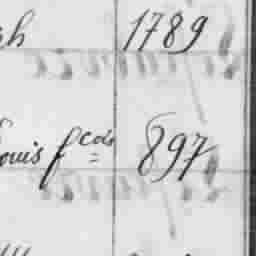 1789
ouis fcois 897